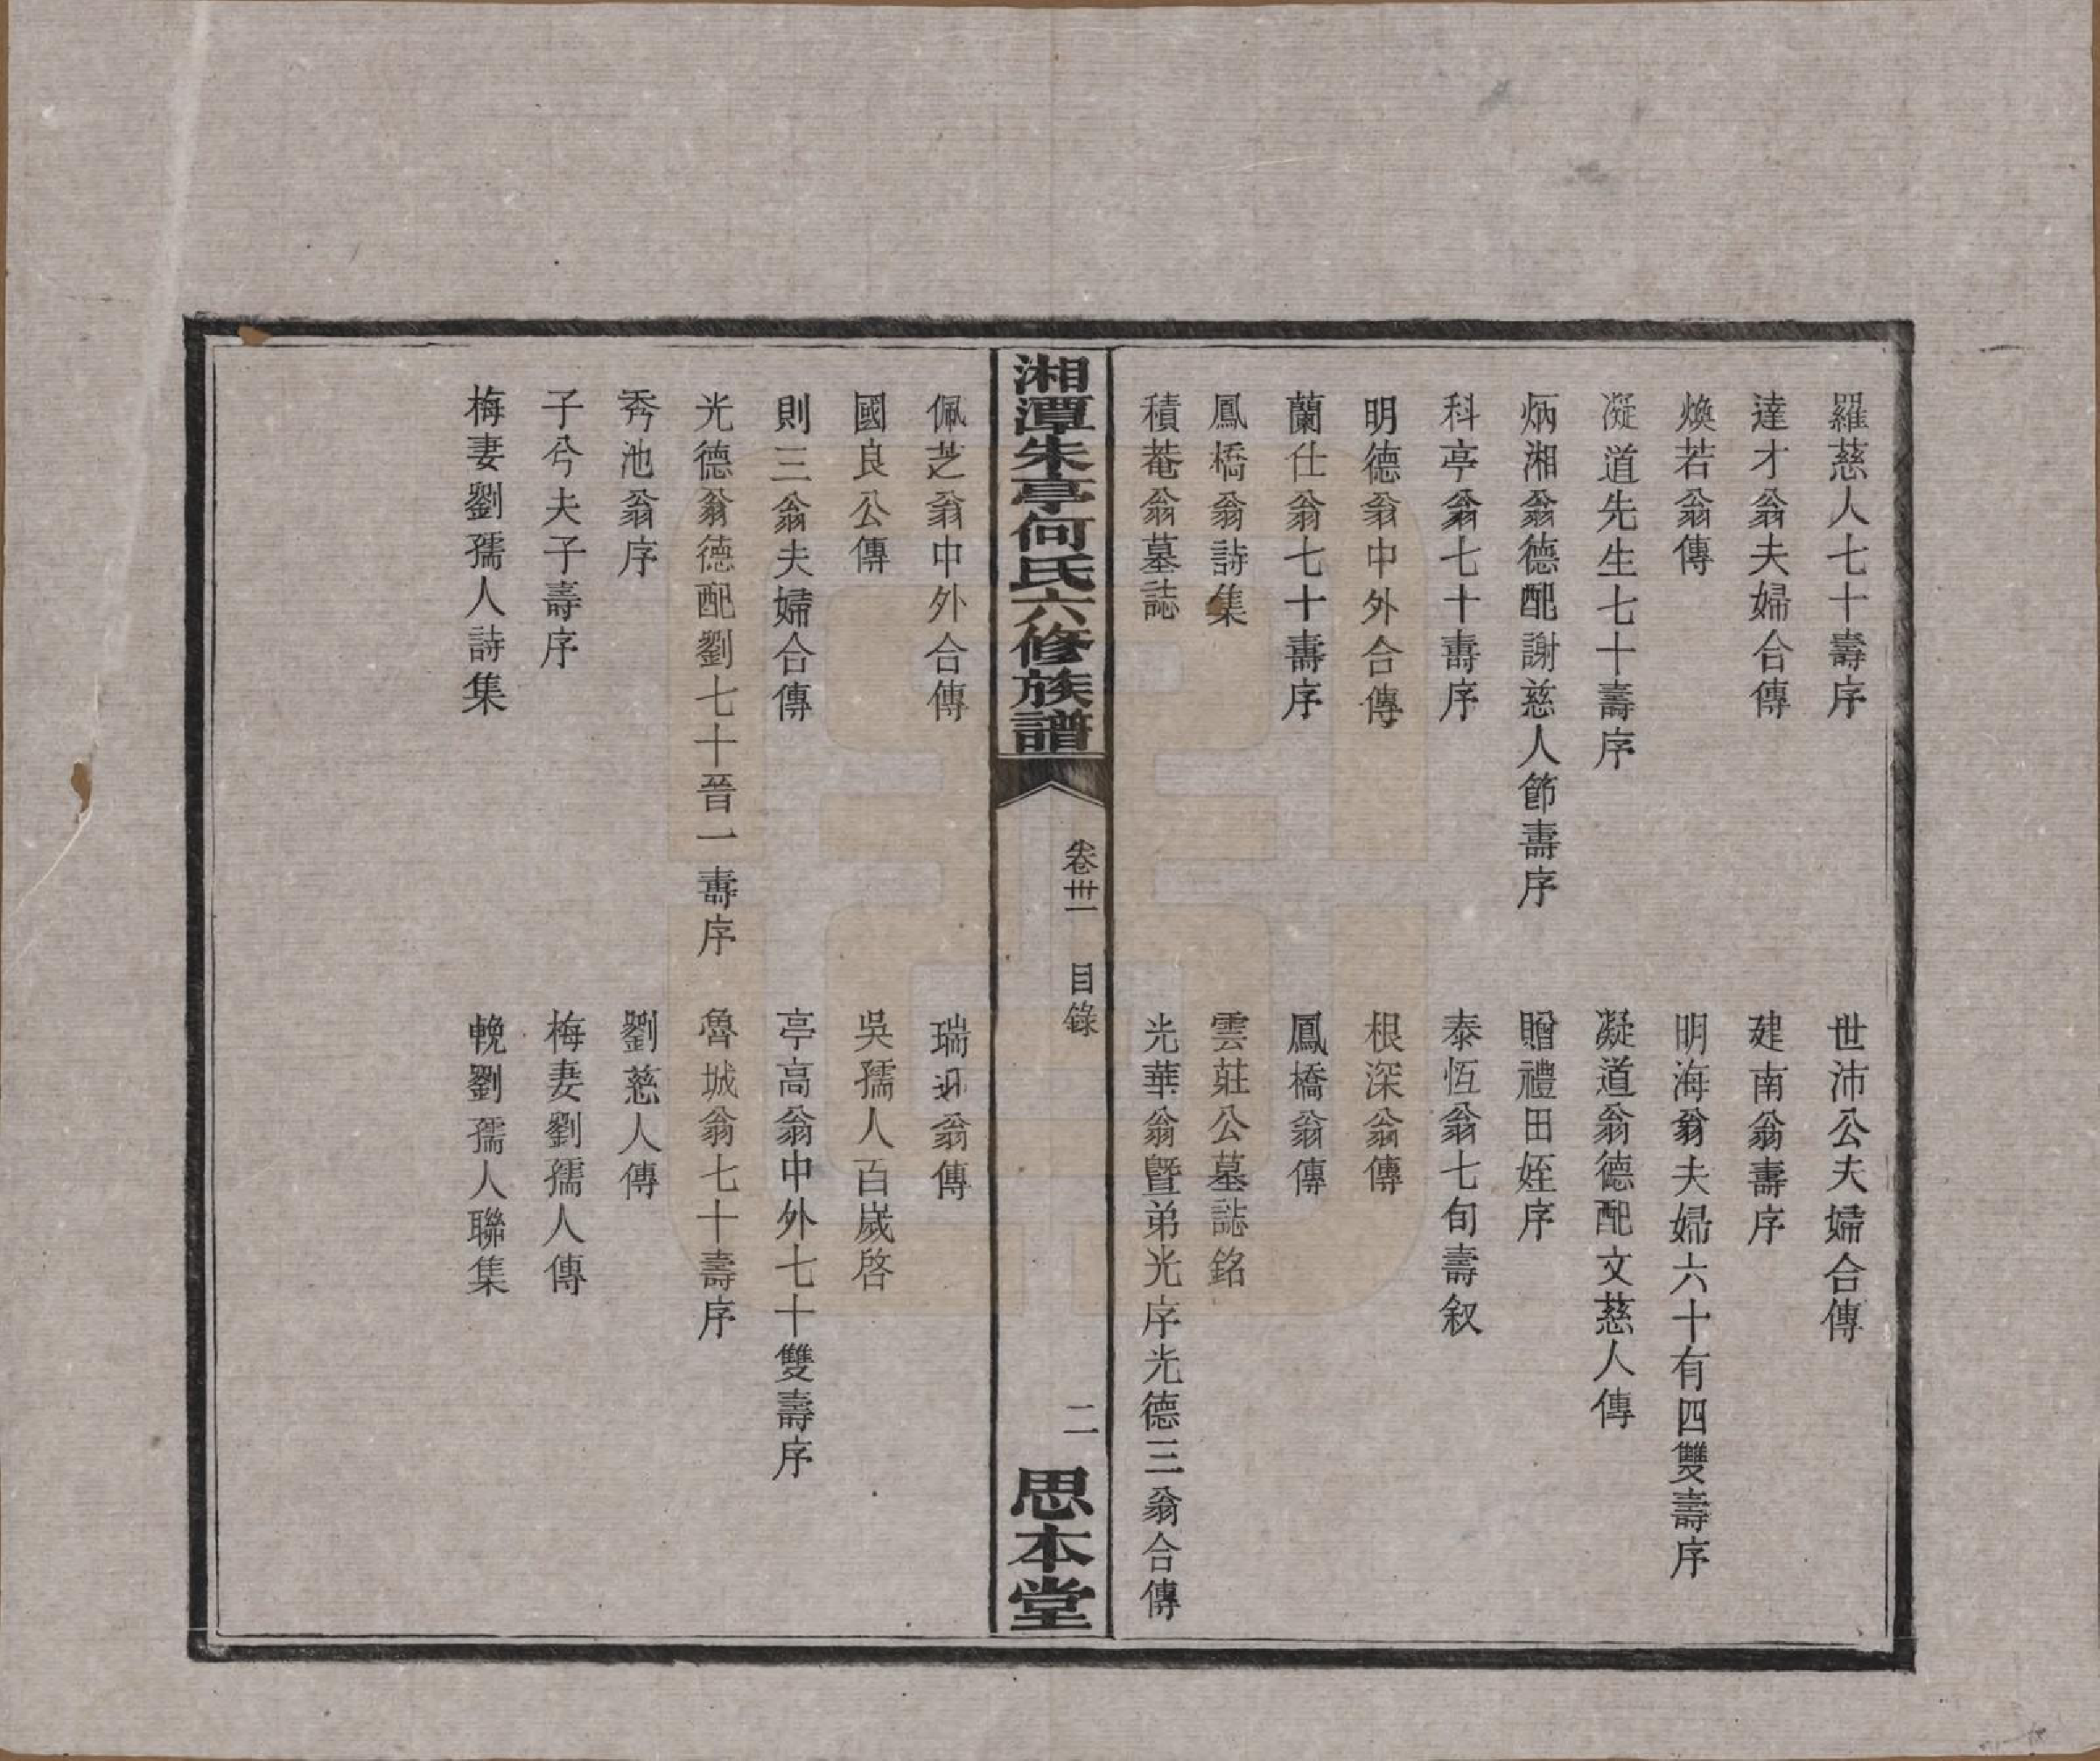 羅慈人七十壽序　世沛公夫婦合傳
達才翁夫婦合傳　建南翁壽序
煥若翁傳　明海翁夫婦六十有四雙壽序
凝道先生七十壽序　凝道翁德配文慈人傳
炳湘翁德配謝慈人節壽序　贈禮田姪序
科亭翁七十壽序　泰恆翁七旬壽叙
明德翁中外合傳　根深翁傳
蘭仕翁七十壽序　鳳橋翁傳
鳳橋翁詩集　雲莊公墓誌銘
積菴翁墓誌　光華翁暨弟光序光德三翁合傳
湘潭朱亭何氏六修族譜　卷卅一　目錄　二　思本堂
佩芝翁中外合傳　瑞廷翁傳
國良公傳　吳孺人百嵗啓
則三翁夫婦合傳　亭高翁中外七十雙壽序
光德翁德配劉七十晉一壽序　魯城翁七十壽序
秀池翁序　劉慈人傳
子兮夫子壽序　梅妻劉孺人傳
梅妻劉孺人詩集　輓劉孺人聯集